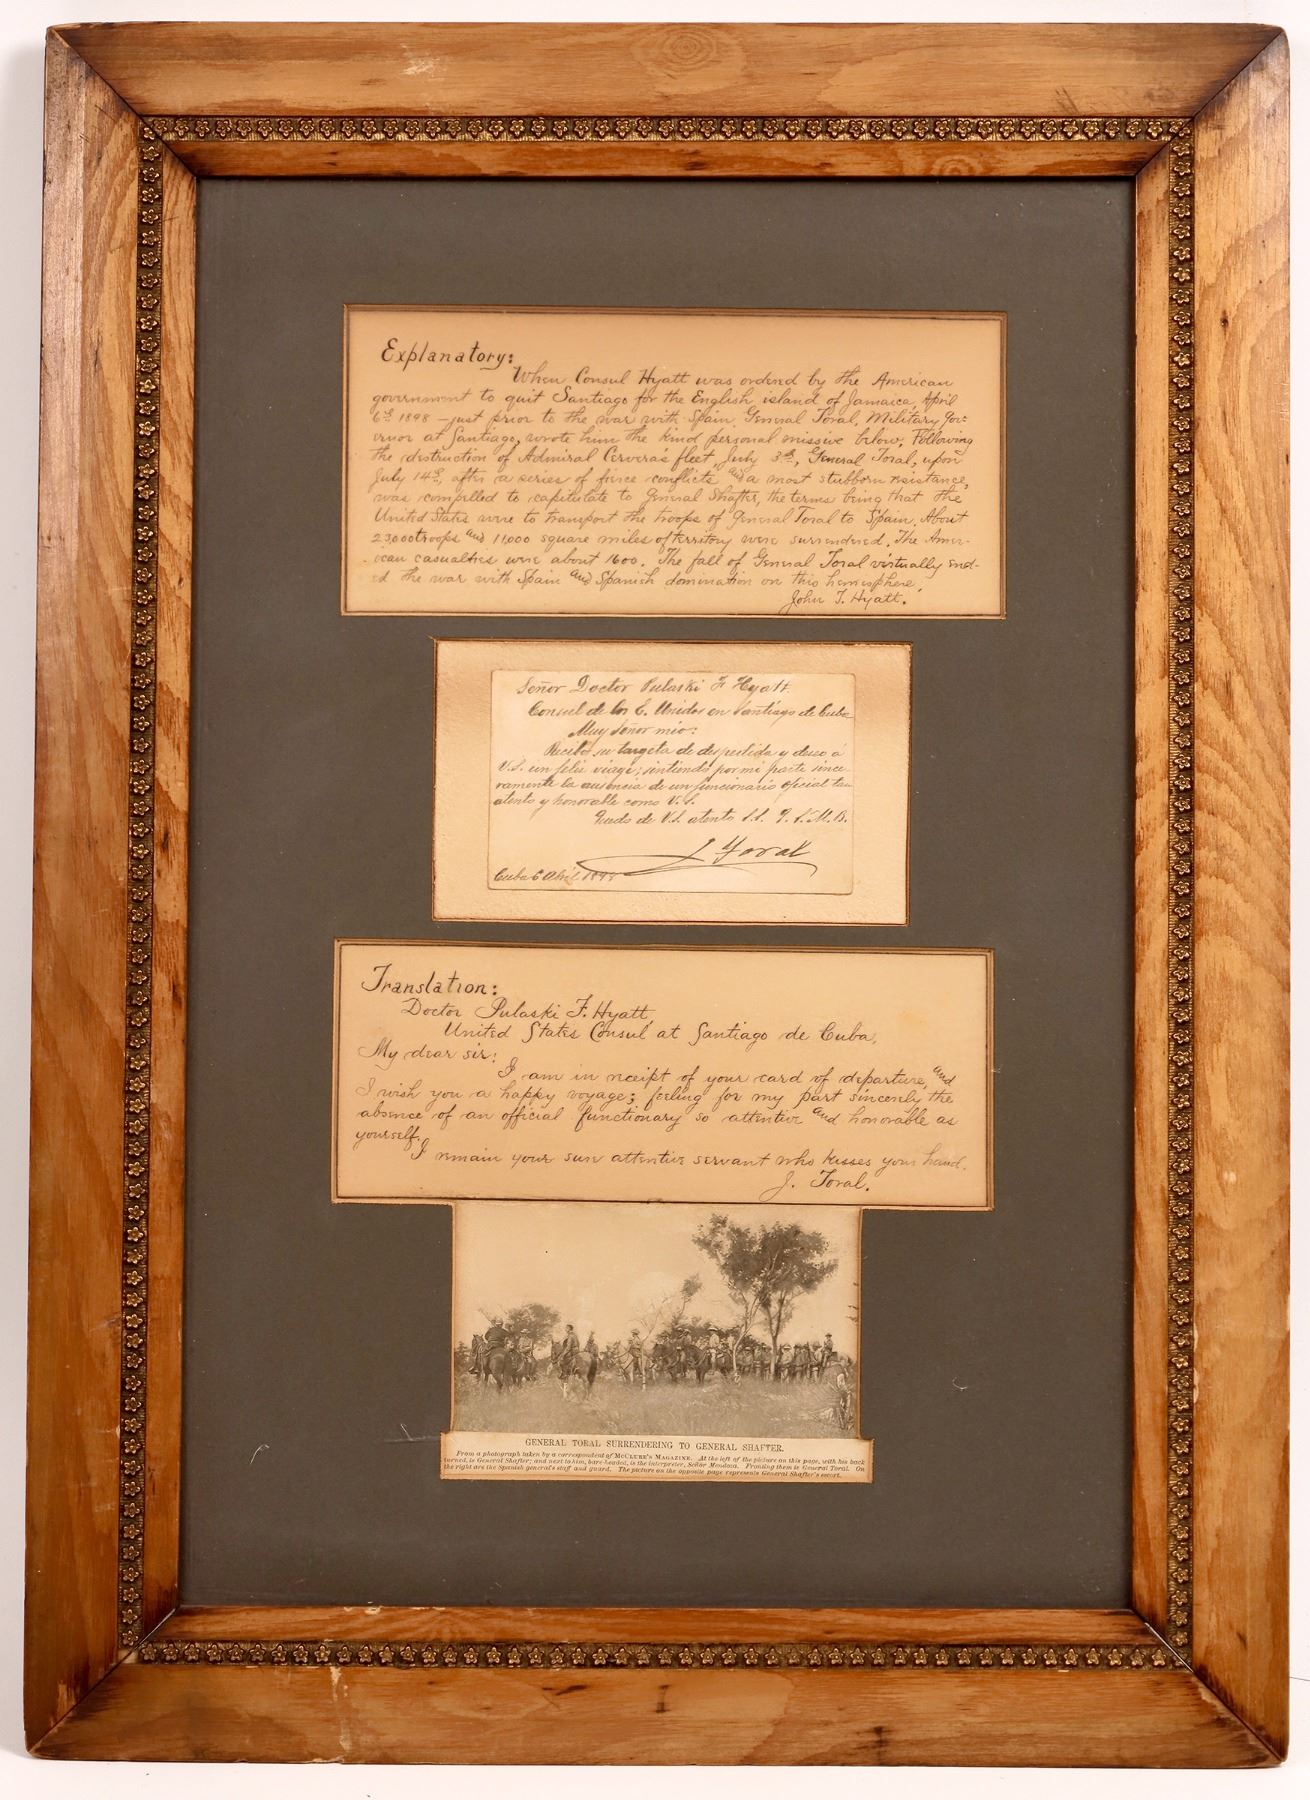 Explanatory:
When Consul Hyatt was ordered by the American
government to quit Santiago for the English island of Jamaica, April
6th 1898 – just prior to the war with Spain, General Toral, Military Gov-
ernor at Santiago, wrote him the kind personal missive below. Following
the destruction of Admiral Cervera's fleet, July 3d, General Toral, upon
July 14th, after a series of fierce conflicts and a most stubborn resistance,
was compelled to capitulate to General Shafter, the terms being that the
United States were to transport the troops of General Toral to Spain. About
23,000 troops and 11,000 square miles of territory were surrendered. The Amer-
ican casualties were about 1600. The fall of General Toral virtually end-
ed the war with Spain and Spanish domination on this hemisphere.
John T. Hyatt.
Señor Doctor Pulaski F Hyatt
Consul de los E. Unidos en Santiago de Cuba
Muy Señor mio:
Recibo su targeta de despedida y deseo á
V.S. un feliz viage; sintiendo por mi parte since-
ramente la ausencia de un funcionario oficial tan
atento y honorable como V.S.
Quedo de V.S. atento S.S. Q.S.M.B.
J Toral
Cuba 6 Abril 1898
Translation:
Doctor Pulaski F. Hyatt,
United States Consul at Santiago de Cuba,
My dear sir:
I am in receipt of your card of departure, and
I wish you a happy voyage; feeling for my part sincerely the
absence of an official functionary so attentive and honorable as
yourself.
I remain your sure attentive servant who kisses your hand.
J. Toral.
GENERAL TORAL SURRENDERING TO GENERAL SHAFTER.
From a photograph taken by a correspondent of McClure's Magazine. At the left of the picture on this page, with his back
turned, is General Shafter; and next to him, bare-headed, is the interpreter, Señor Mendoza. Fronting them is General Toral. On
the right are the Spanish general's staff and guard. The picture on the opposite page represents General Shafter's escort.